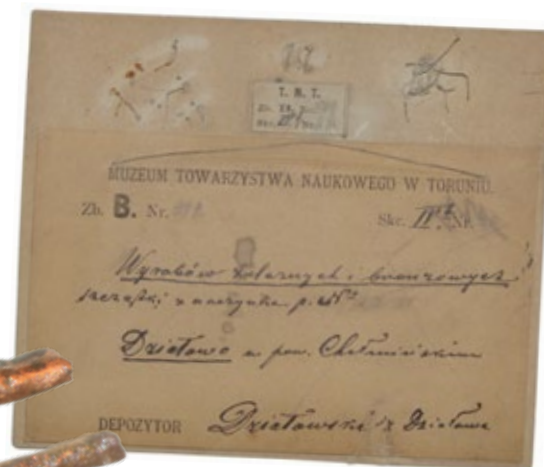 T. N. T.
MUZEUM TOWARZYSTWA NAUKOWEGO W TORUNIU.
Zb. B. Nr. Skr. IV
Wyrobów żelaznych i bronzowych
szczątki z naczynka p. Nº
Działowo w pow. Chełmińskim
DEPOZYTOR Działowski z Działowa